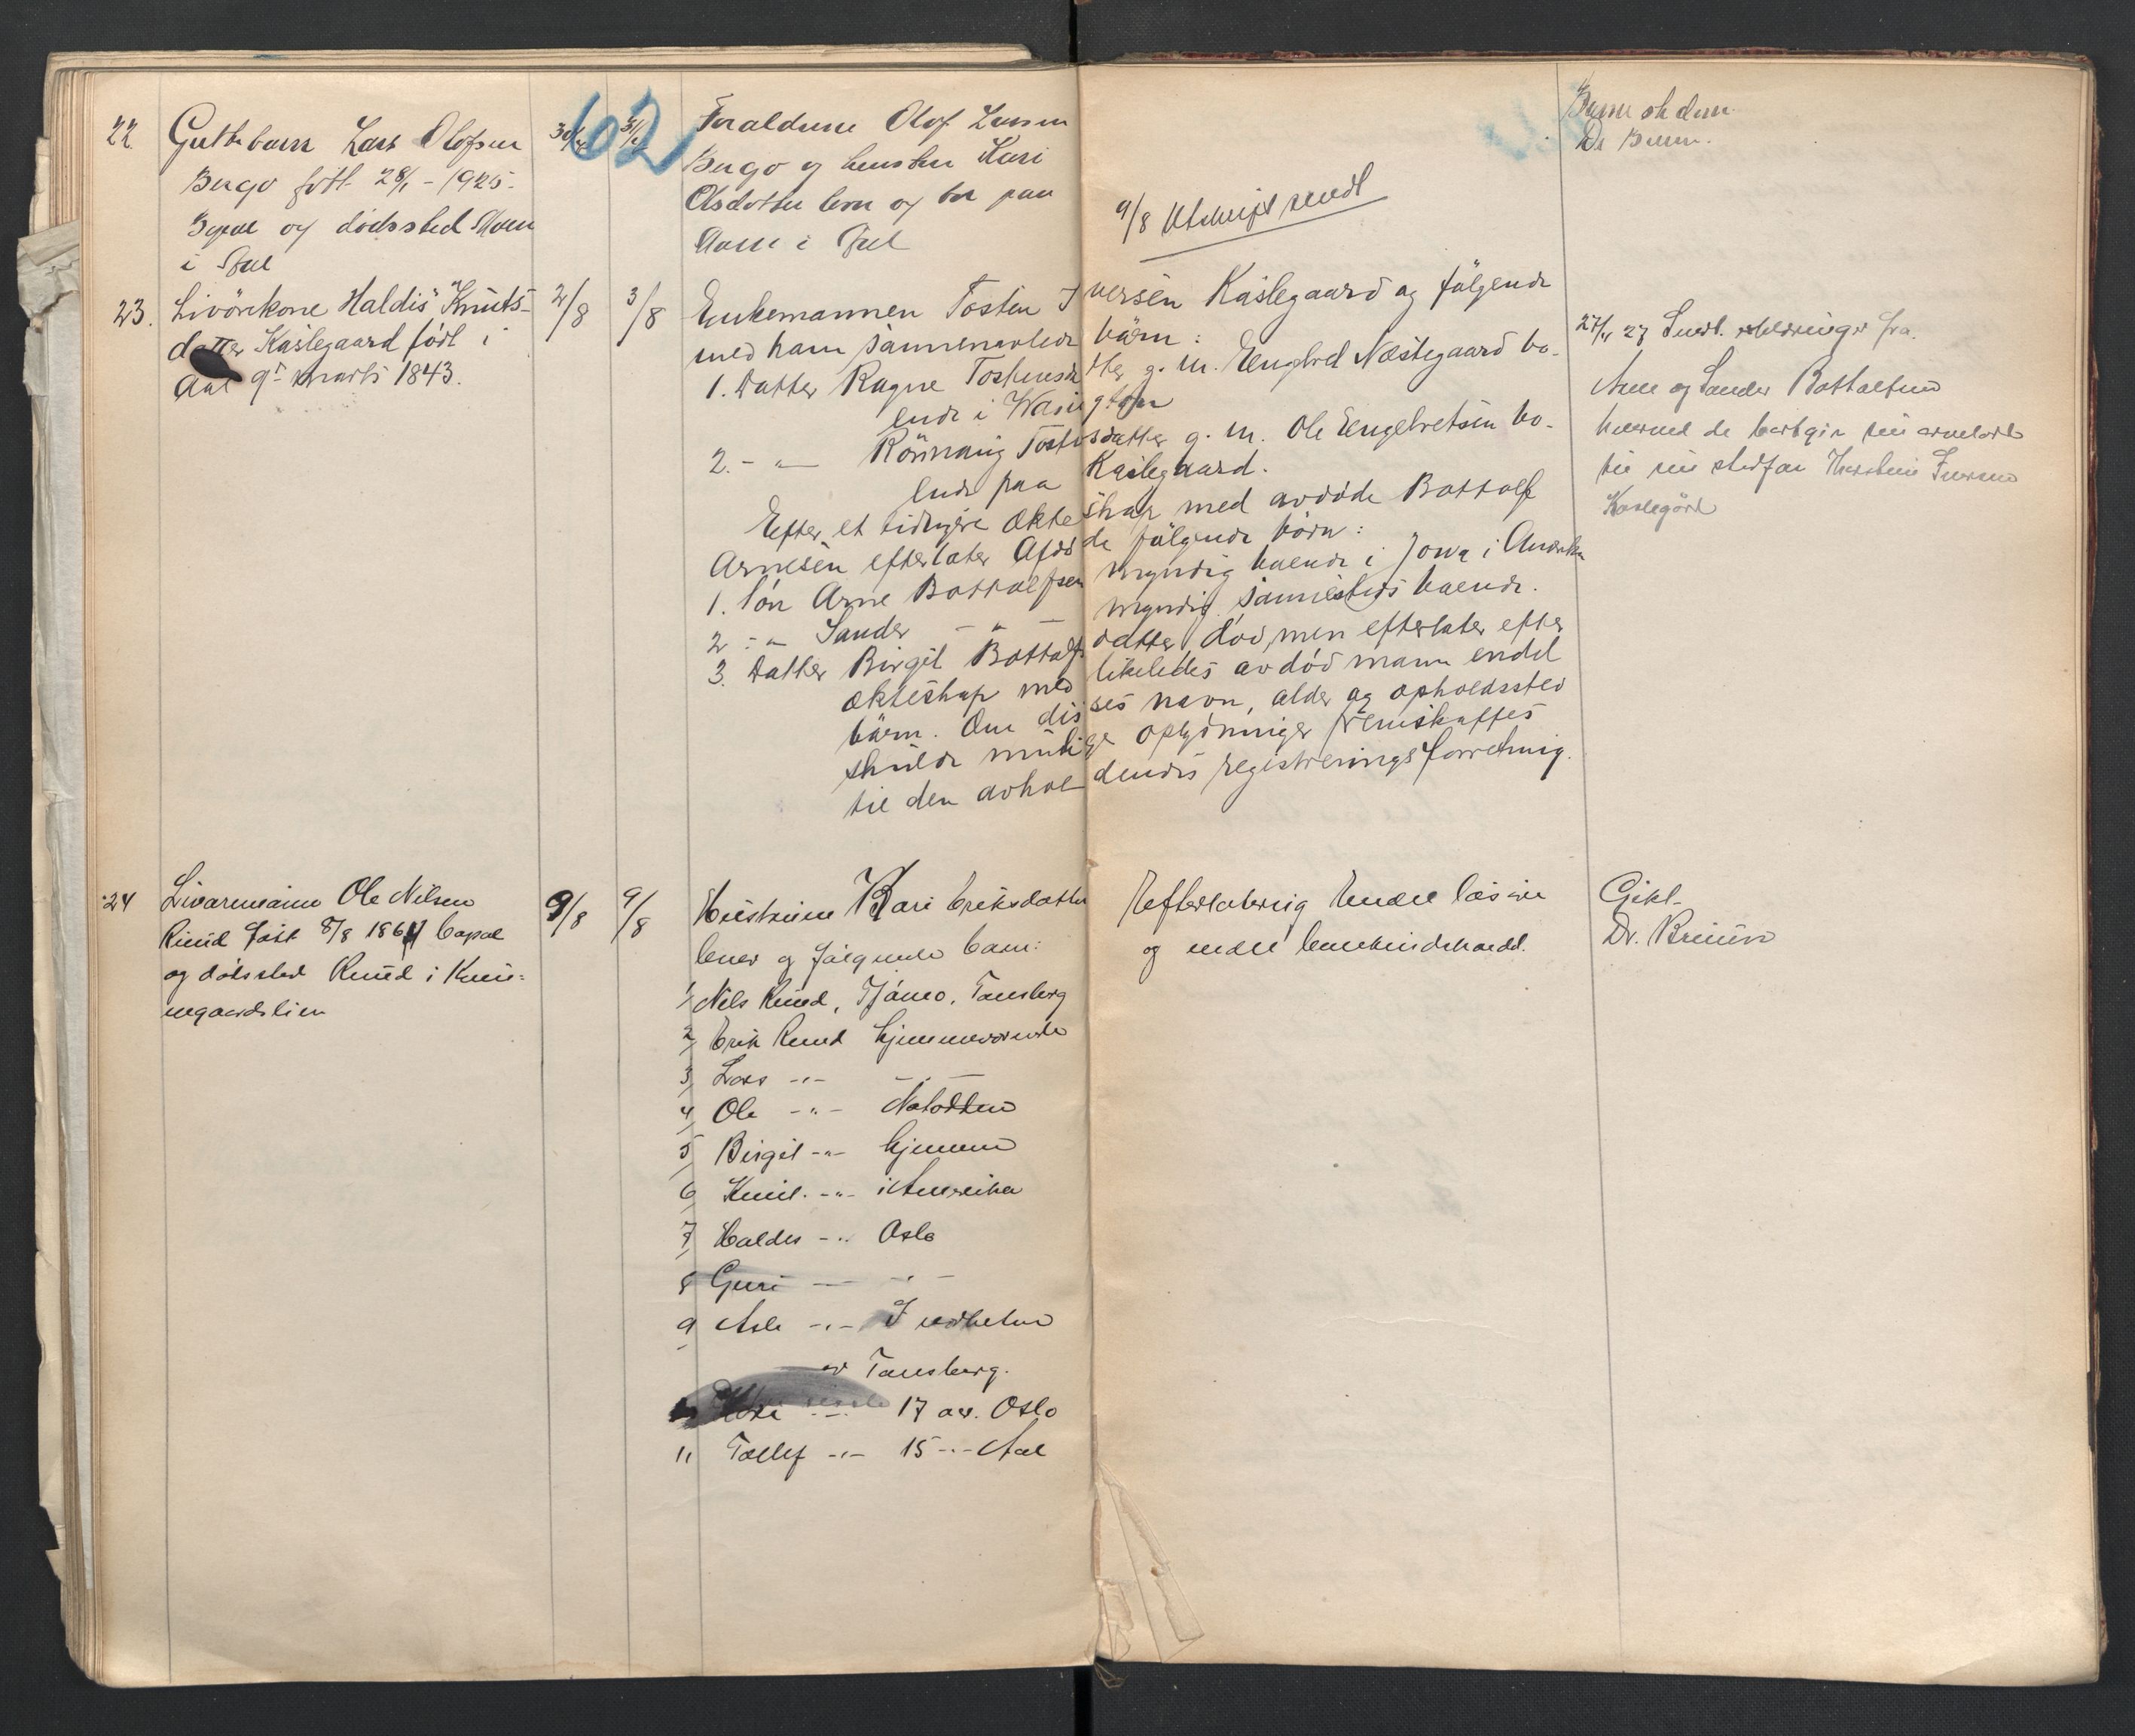 62
22 Guttebarn Lars Olofsen
Bergo født 28/1 - 1925.
og dødssted
i Aal
30/ 31/
Foraldrene Olof Larsen
Bergo og hustru Kari
Olsdotter og bor paa
i Aal
9/8 Utskrift sendt
Dr
23. Livörekone Haldis Knuts-
datter Kaslegaard födt i
Aal 9de marts 1843.
2/8 3/8
Enkemannen Tosten Iversen Kaslegaard og fölgende
med ham sammenavlede börn:
1. Datter Ragne Tostensdatter g. m. Engebret Næstegaard bo-
ende i Wasington
2. - " - Rönnaug Tostensdatter g. m. Ole Engebretsen bo-
ende paa Kaslegaard.
Efter et tidligere ekteskap med avdöde Bottolf
Arnesen efterlater Afdöde fölgende börn:
1. Sön Arne Bottolfsen myndig boende i Jowa i Amerika
2. - " - Sander - " - myndig sammesteds boende.
3. Datter Birgit Bottolfsdatter, död, men efterlater efter
ekteskap med likeledes avdöd mann endel
börn. Om disses navn, alder og opholdssted
skulde mulige oplysninger fremskaffes
til den avholdendes registreringsforretning.
27/ 27 Erklæringer fra
Arne og Sander Bottolfsen
hvorved de sin arvelodd
til sin stedfar Thorstein Iversen
Kaslegård
24 Livørmann Ole Nilsen
Rued født 8/8 1864 bopæl
og dødssted Rued i Kvin-
negardslien
9/8 9/8
Hustruen Kari Eriksdatter
lever og følgende barn:
1/ Nils Rued, Tjømø, Tønsberg
2/ Erik Rued hjemmeværende
3/ Lars - " - - " -
4/ Ole - " - Notodden
5/ Birgit - " - hjemme
6/ Knut - " - i Amerika
7/ Haldis - " - Oslo
8/ Guri - " -
9/ Asle - " - i nærheten
av Tønsberg.
Kari - " - 17 aar. Oslo
11 Tollef - " - 15 - " - Aal
Efterlater sig endel løsøre
og endel
Gikt
Dr. Bruun